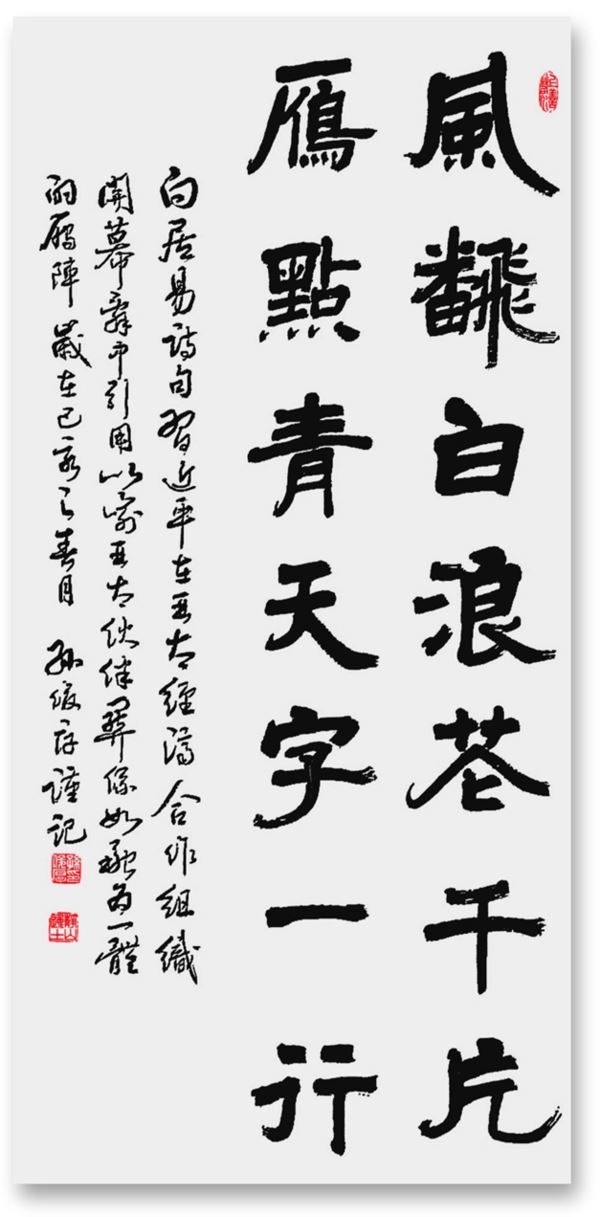 風飜白浪花千片
鴈點青天字一行
白居易詩句習近平在亞太經濟合作組織
開幕辭中引用以喻亞太伙伴關係如融为一體
的鴈陣歲在己亥之春月 孫 謹記